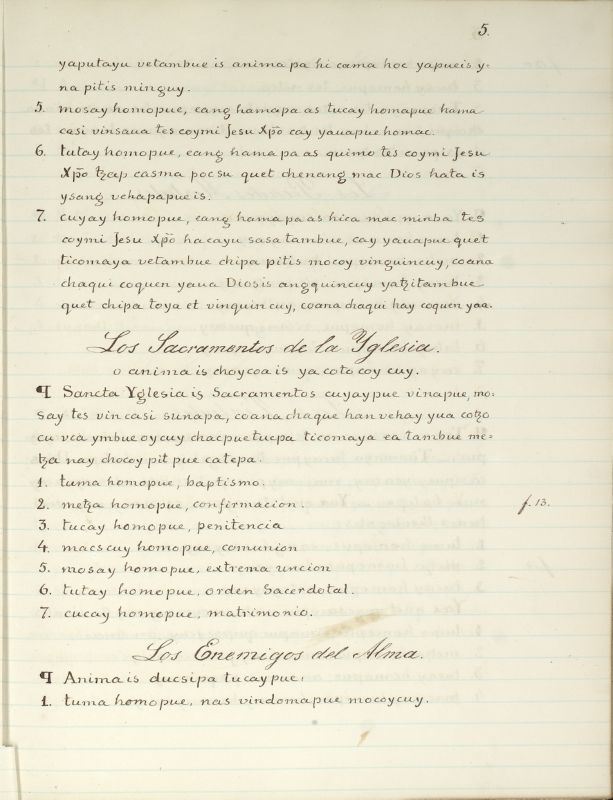 5.
yaputayu vetambue is anima pa hi cama hoc yapueis y=
na pitis minguy.
5. mosay homopue, cang hamapa as tucay homapue hama
casi vinsaua tes coymi Jesu Xp̄o cay yauapue homac.
6. tutay homopue, cang hamapa as quimo tes coymi Jesu
Xp̄o tzap casma pocsu quet chenang mac Dios hata is
ysang vchapapue is.
7. cuyay homopue, cang hamapa as hica mac minba tes
coymi Jesu Xp̄o ha cayu sasa tambue, cay yauapue quet
ticomaya vetambue chipa pitis mocoy vinguincuy, coana
chaqui coquen yaua Diosis angquincuy yatzitambue
quet chipa toya et vinquin cuy, coana chaqui hay coquen yaa.
Los Sacramentos de la Yglesia.
o anima is choycoa is ya coto coy cuy.
¶ Sancta Yglesia is Sacramentos cuyaypue vinapue, mo=
say tes vin casi sunapa, coana chaque han vehay yua cotzo
cu vca ymbue oycuy chacpue tucpa ticomaya ea tambue me=
tza nay chocoy pit pue catepa.
1. tuma homopue, baptismo.
2. metza homopue, confirmacion. f. 13.
3. tucay homopue, penitencia
4. macscuy homopue, comunion
5. mosay homopue, extrema uncion
6. tutay homopue, orden Sacerdotal.
7. cucay homopue, matrimonio.
Los Enemigos del Alma.
¶ Anima is ducsipa tucay pue,
1. tuma homopue, nas vindomapue mocoycuy.